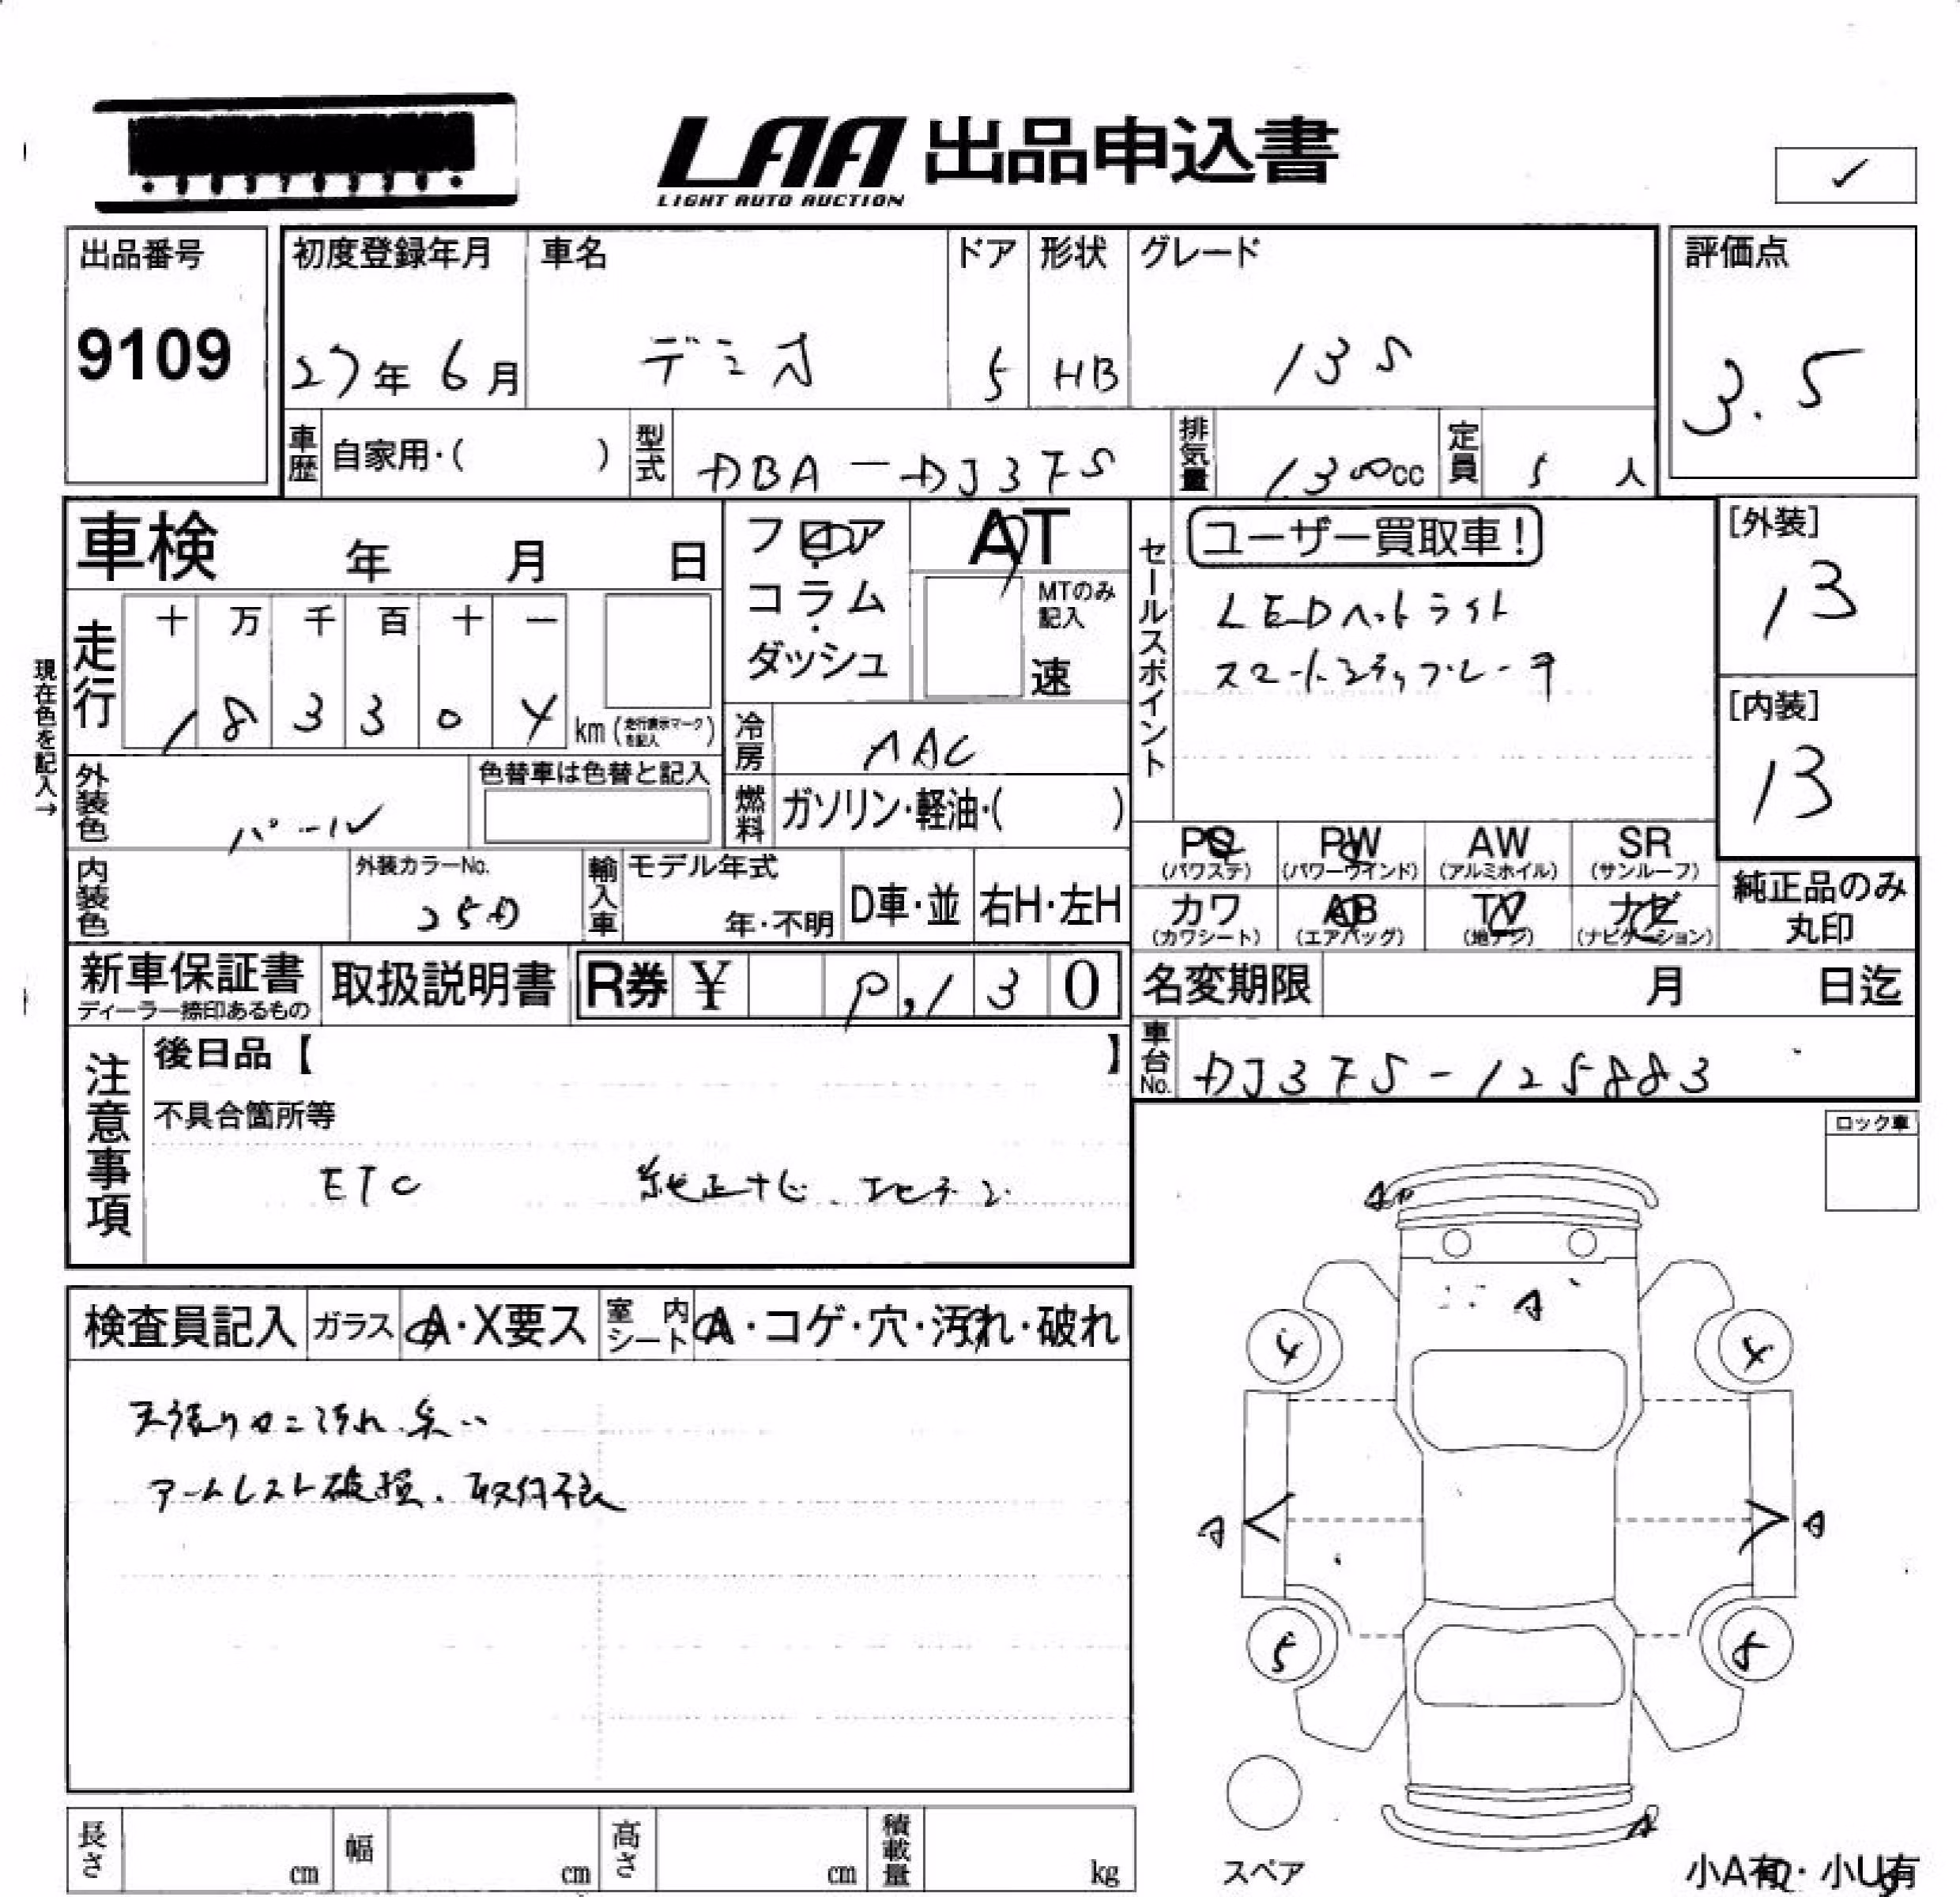 LAA 出品申込書
LIGHT AUTO AUCTION
出品番号
9109
初度登録年月 車名 ドア 形状 グレード
27年 6月 デミオ 5 HB 13S
評価点
3.5
車歴 自家用・( ) 型式 DBA-DJ3FS 排気量 1300cc 定員 5 人
車検 年 月 日
フロア・コラム・ダッシュ
AT
MTのみ記入
速
セールスポイント
ユーザー買取車!
LEDヘットライト
スマートシティブレーキ
[外装]
13
[内装]
13
現在色を記入→
走行 十 万 千 百 十 一
1 8 3 3 0 4 km (走行表示マークを記入)
冷房 AAC
外装色 パール
色替車は色替と記入
燃料 ガソリン・軽油・( )
内装色
外装カラーNo.
25D
輸入車 モデル年式
年・不明
D車・並 右H・左H
PS (パワステ) PW (パワーウインド) AW (アルミホイル) SR (サンルーフ)
カワ (カワシート) AB (エアバッグ) TV (地デジ) ナビ (ナビゲーション)
純正品のみ丸印
新車保証書
ディーラー捺印あるもの
取扱説明書
R券 ¥ 9,130
名変期限 月 日迄
車台No. DJ3FS-125883
注意事項
後日品【 】
不具合箇所等
ETC 純正ナビ、
ロック車
検査員記入 ガラス A・X要ス 室内シート A・コゲ・穴・汚れ・破れ
天張りヤニ汚れ、臭い
アームレスト破損、取付不良
A
A
4 4
A A
5 5
A
スペア
小A有・小U有
長さ cm 幅 cm 高さ cm 積載量 kg